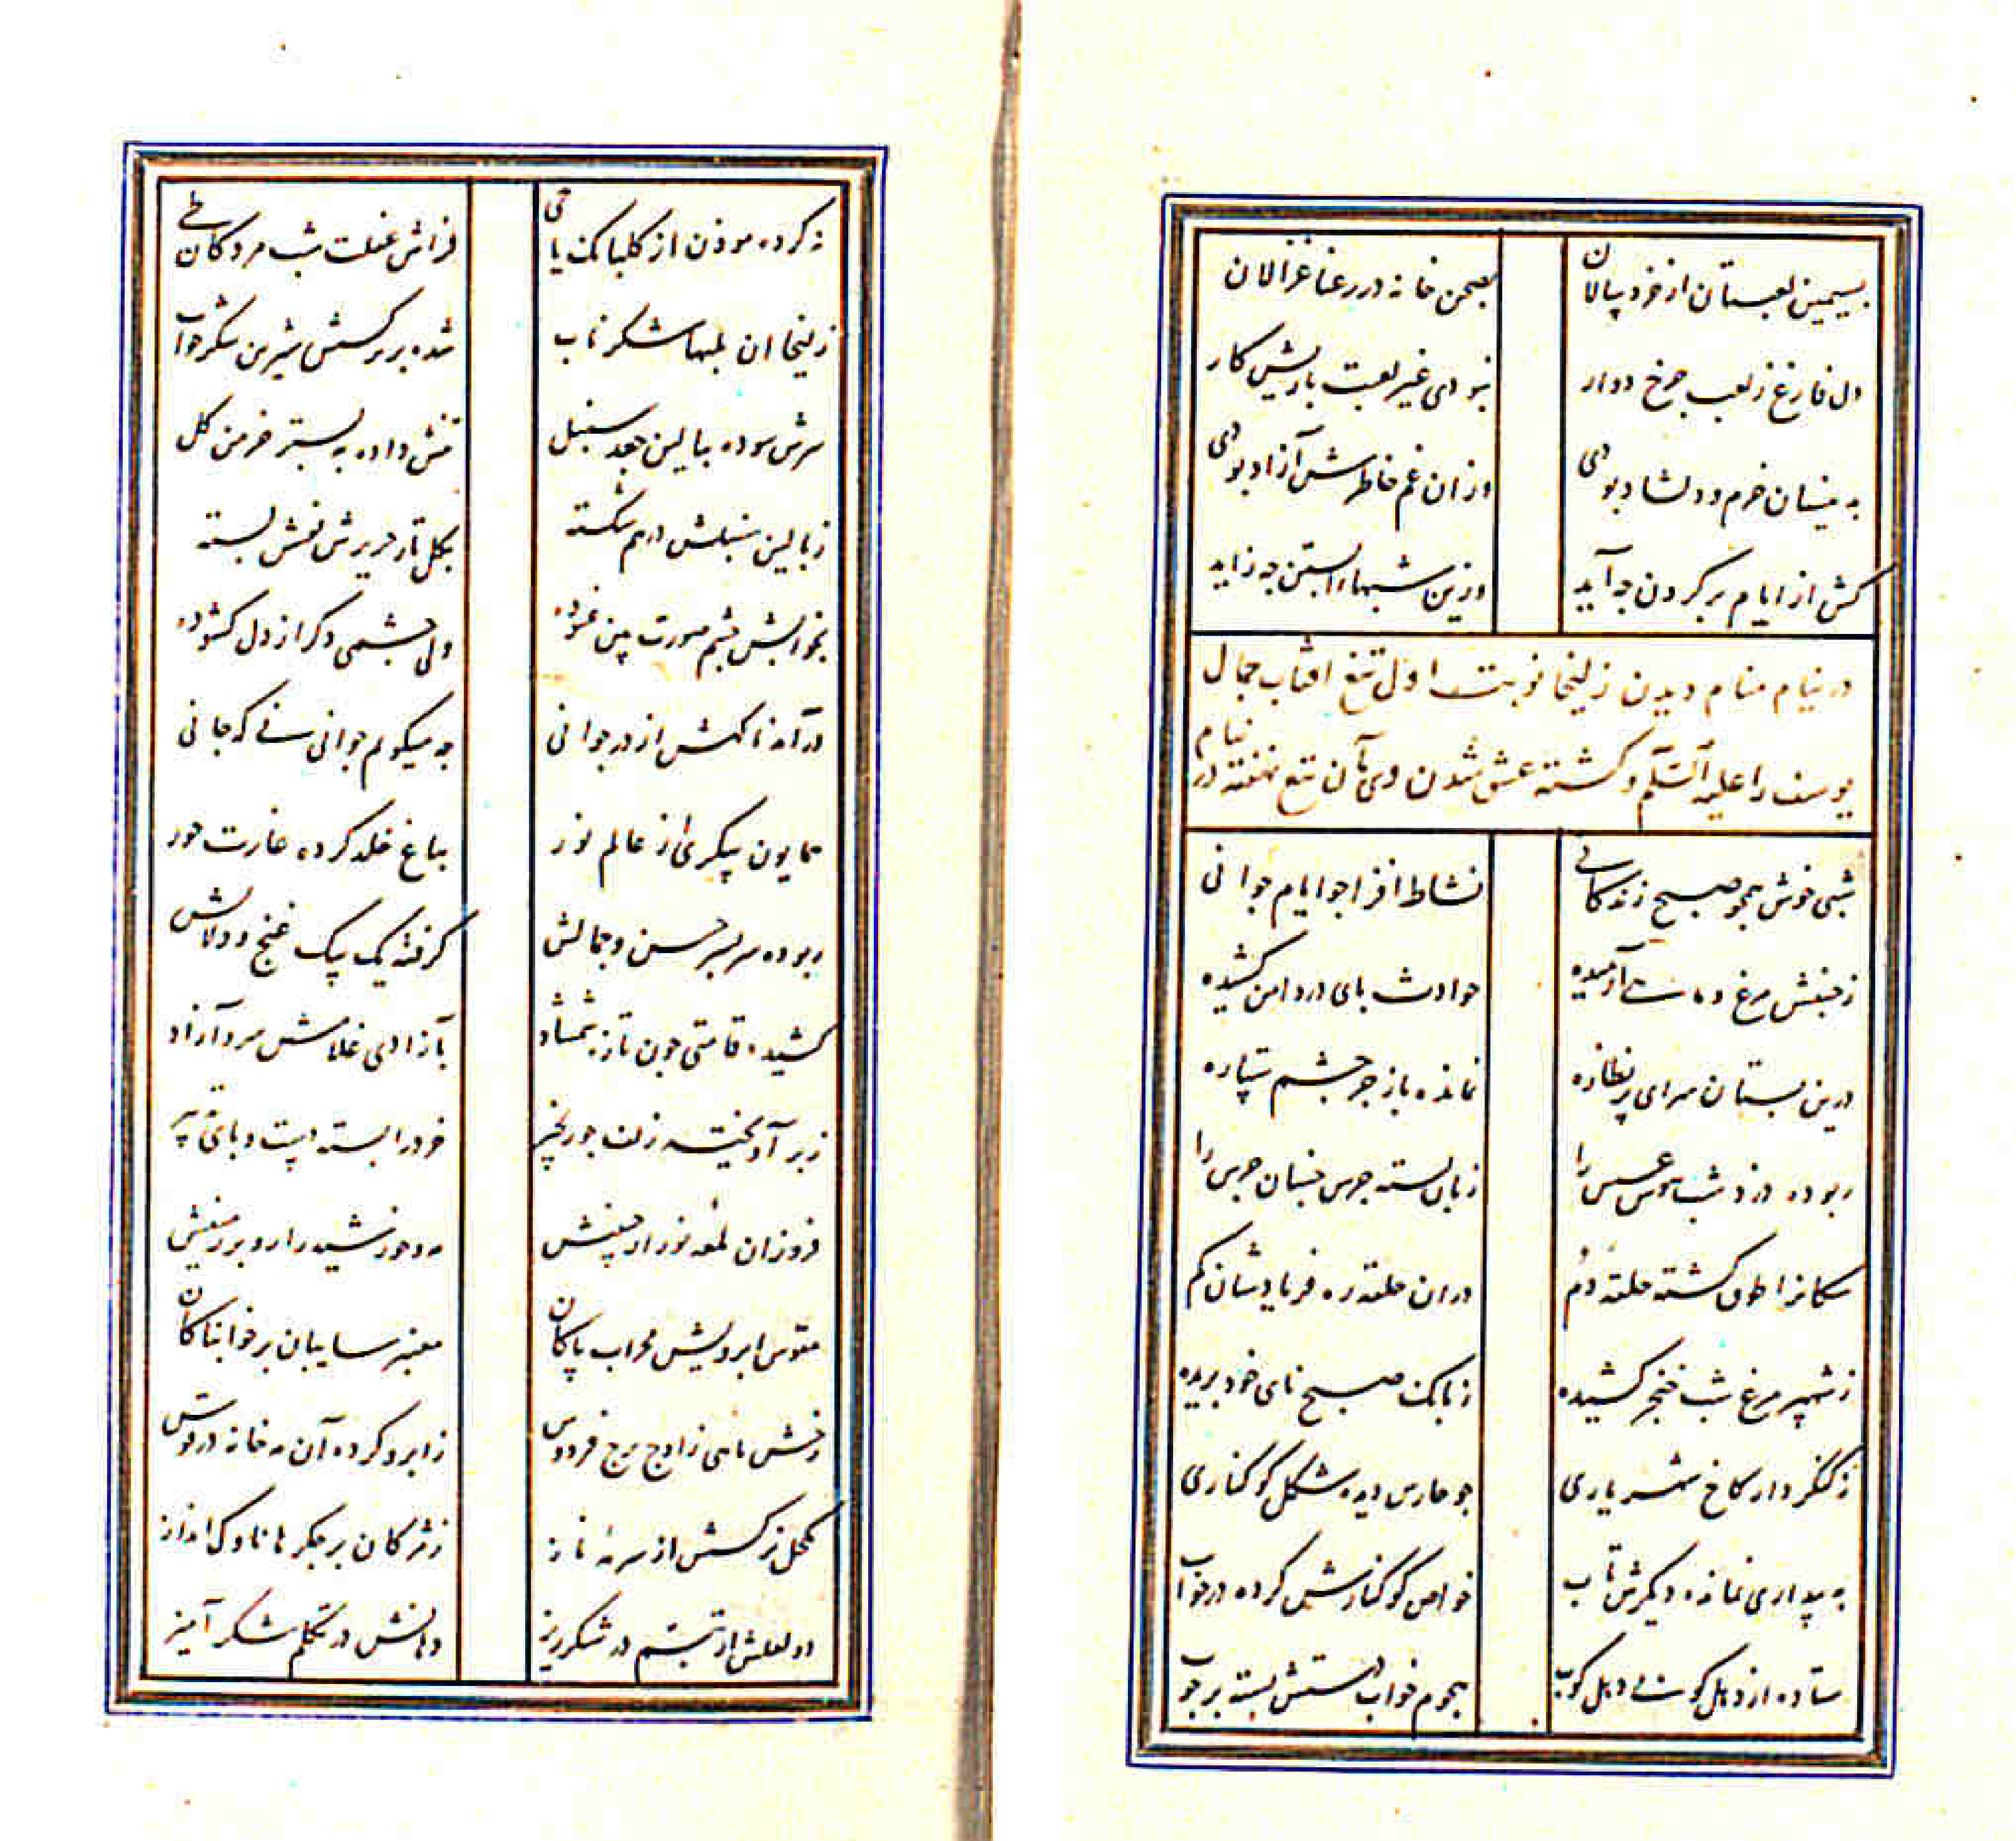 بسیمین لعبتان از خرد پالان بصحن خانه در رعنا غزالان
دل فارغ ز لعب چرخ دوار نبودی غیر لعبت بازیش کار
به مینسان خرم و دلشاد بودی وزان غم خاطرش آزاد بودی
کش از ایام بر کردن جه آید وزین شبهاء ابستن جه زاید
در نیام منام دیدن زلیخا نوبت اول تیغ افتاب جمال
یوسف را علیه السلم و کشته عشق شدن وی بآن تیغ نهفته در نیام
شبی خوش همجو صبح زندکانی نشاط افزا جو ایام جوانی
ز جنبش مرغ و ماهی آرمیده حوادث بای در دامن کشیده
درین بستان سرای پر نظاره نمانده باز جز جشم ستاره
ربوده دزد شب هوش عسس را زبان بسته جرس جنبان جرس را
سکانرا طوق کشته حلقه دُم دران حلقه ره فریادشان کم
ز شهپر مرغ شب خنجر کشیده ز بانک صبح نای خود بریده
ز کنکر دار کاخ شهریاری جو حارس دیده شکل کوکناری
به بیداری نمانده دیکرش تاب خواص کوکنارش کرده در خواب
ستاده از دهل کوبی دهل کوب هجوم خواب دستش بسته بر جوب
نه کرده موذن از کلبانک یا حی فراش غفلت شب مردکان طی
زلیخا ان بلبها شکر ناب شده بر نرکسش شیرین شکر خواب
سرش سوده ببالین جعد سنبل تنش داده به بستر خرمن کل
ز بالین سنبلش درهم شکسته بکل تار حریرش نقش بسته
بخوابش جشم صورت بین غنوده ولی جشمی دکر از دل کشوده
درآمد ناکهش از در جوانی جه میکویم جوانی نی که جانی
همایون پیکری از عالم نور بباغ خلد کرده غارت حور
ربوده سر بسر حسن و جمالش کرفته یک بیک غنج و دلالش
کشیده قامتی جون تازه شمشاد بآزادی غلامش سرو آزاد
ز بر آویخته زلف جو زنجیر خرد را بسته دست و بای تدبیر
فروزان لمعه نور از جبینش مه و خورشید را رو بر زمینش
مقوس ابرویش محراب پاکان معنبر سایبان بر خوابناکان
رخش ماهی ز اوج برج فردوس ز ابرو کرده آن مه خانه در قوس
مکحل نرکسش از سرمه ناز ز مژکان بر جکرها ناوک انداز
دو لعلش از تبسم در شکرریز دهانش در تکلم شکر آمیز